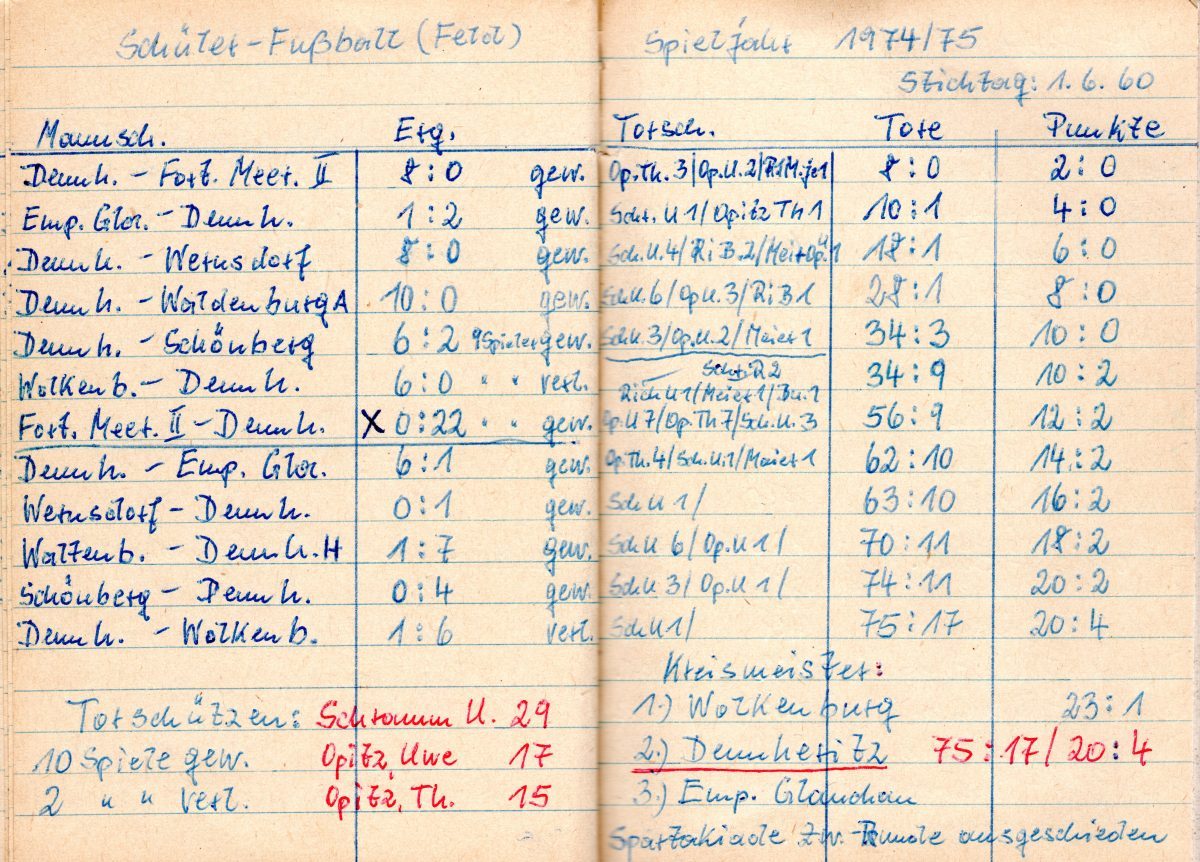 Schüler-Fußball (Feld) Spieljahr 1974/75
Stichtag: 1.6.60
Mannsch. Erg. Torsch. Tore Punkte
Dennh. - Fort. Meer. II 8:0 gew. Op.Th.3/Op.U.2/Ri.M.je1 8:0 2:0
Emp. Glau. - Dennh. 1:2 gew. Schr. U 1/Opitz Th 1 10:1 4:0
Dennh. - Wernsdorf 8:0 gew. Sch.U.4/Ri B.2/Meier 18:1 6:0
Dennh. - Waldenburg A 10:0 gew. Sch.U.6/Op.U.3/Ri B 1 28:1 8:0
Dennh. - Schönberg 6:2 9 Spieler gew. Sch.U.3/Op.U.2/Meier 1 34:3 10:0
Wolkenb. - Dennh. 6:0 " " verl. 34:9 10:2
Rich U 1/Meier 1/
Fort. Meer. II - Dennh. X 0:22 " " gew. Op.U 7/Op.Th 7/Sch.U.3 56:9 12:2
Dennh. - Emp. Glau. 6:1 gew. Op.Th.4/Sch.U.1/Meier 1 62:10 14:2
Wernsdorf - Dennh. 0:1 gew. Sch.U 1/ 63:10 16:2
Waldenb. - Dennh. H 1:7 gew. Sch.U 6/Op.U 1/ 70:11 18:2
Schönberg - Dennh. 0:4 gew. Sch.U 3/Op.U 1/ 74:11 20:2
Dennh. - Wolkenb. 1:6 verl. Sch.U 1/ 75:17 20:4
Torschützen: Schramm U. 29
10 Spiele gew. Opitz, Uwe 17
2 " " verl. Opitz, Th. 15
Kreismeister:
1.) Wolkenburg 23:1
2.) Dennheritz 75:17/20:4
3.) Emp. Glauchau
Spartakiade zw. Runde ausgeschieden